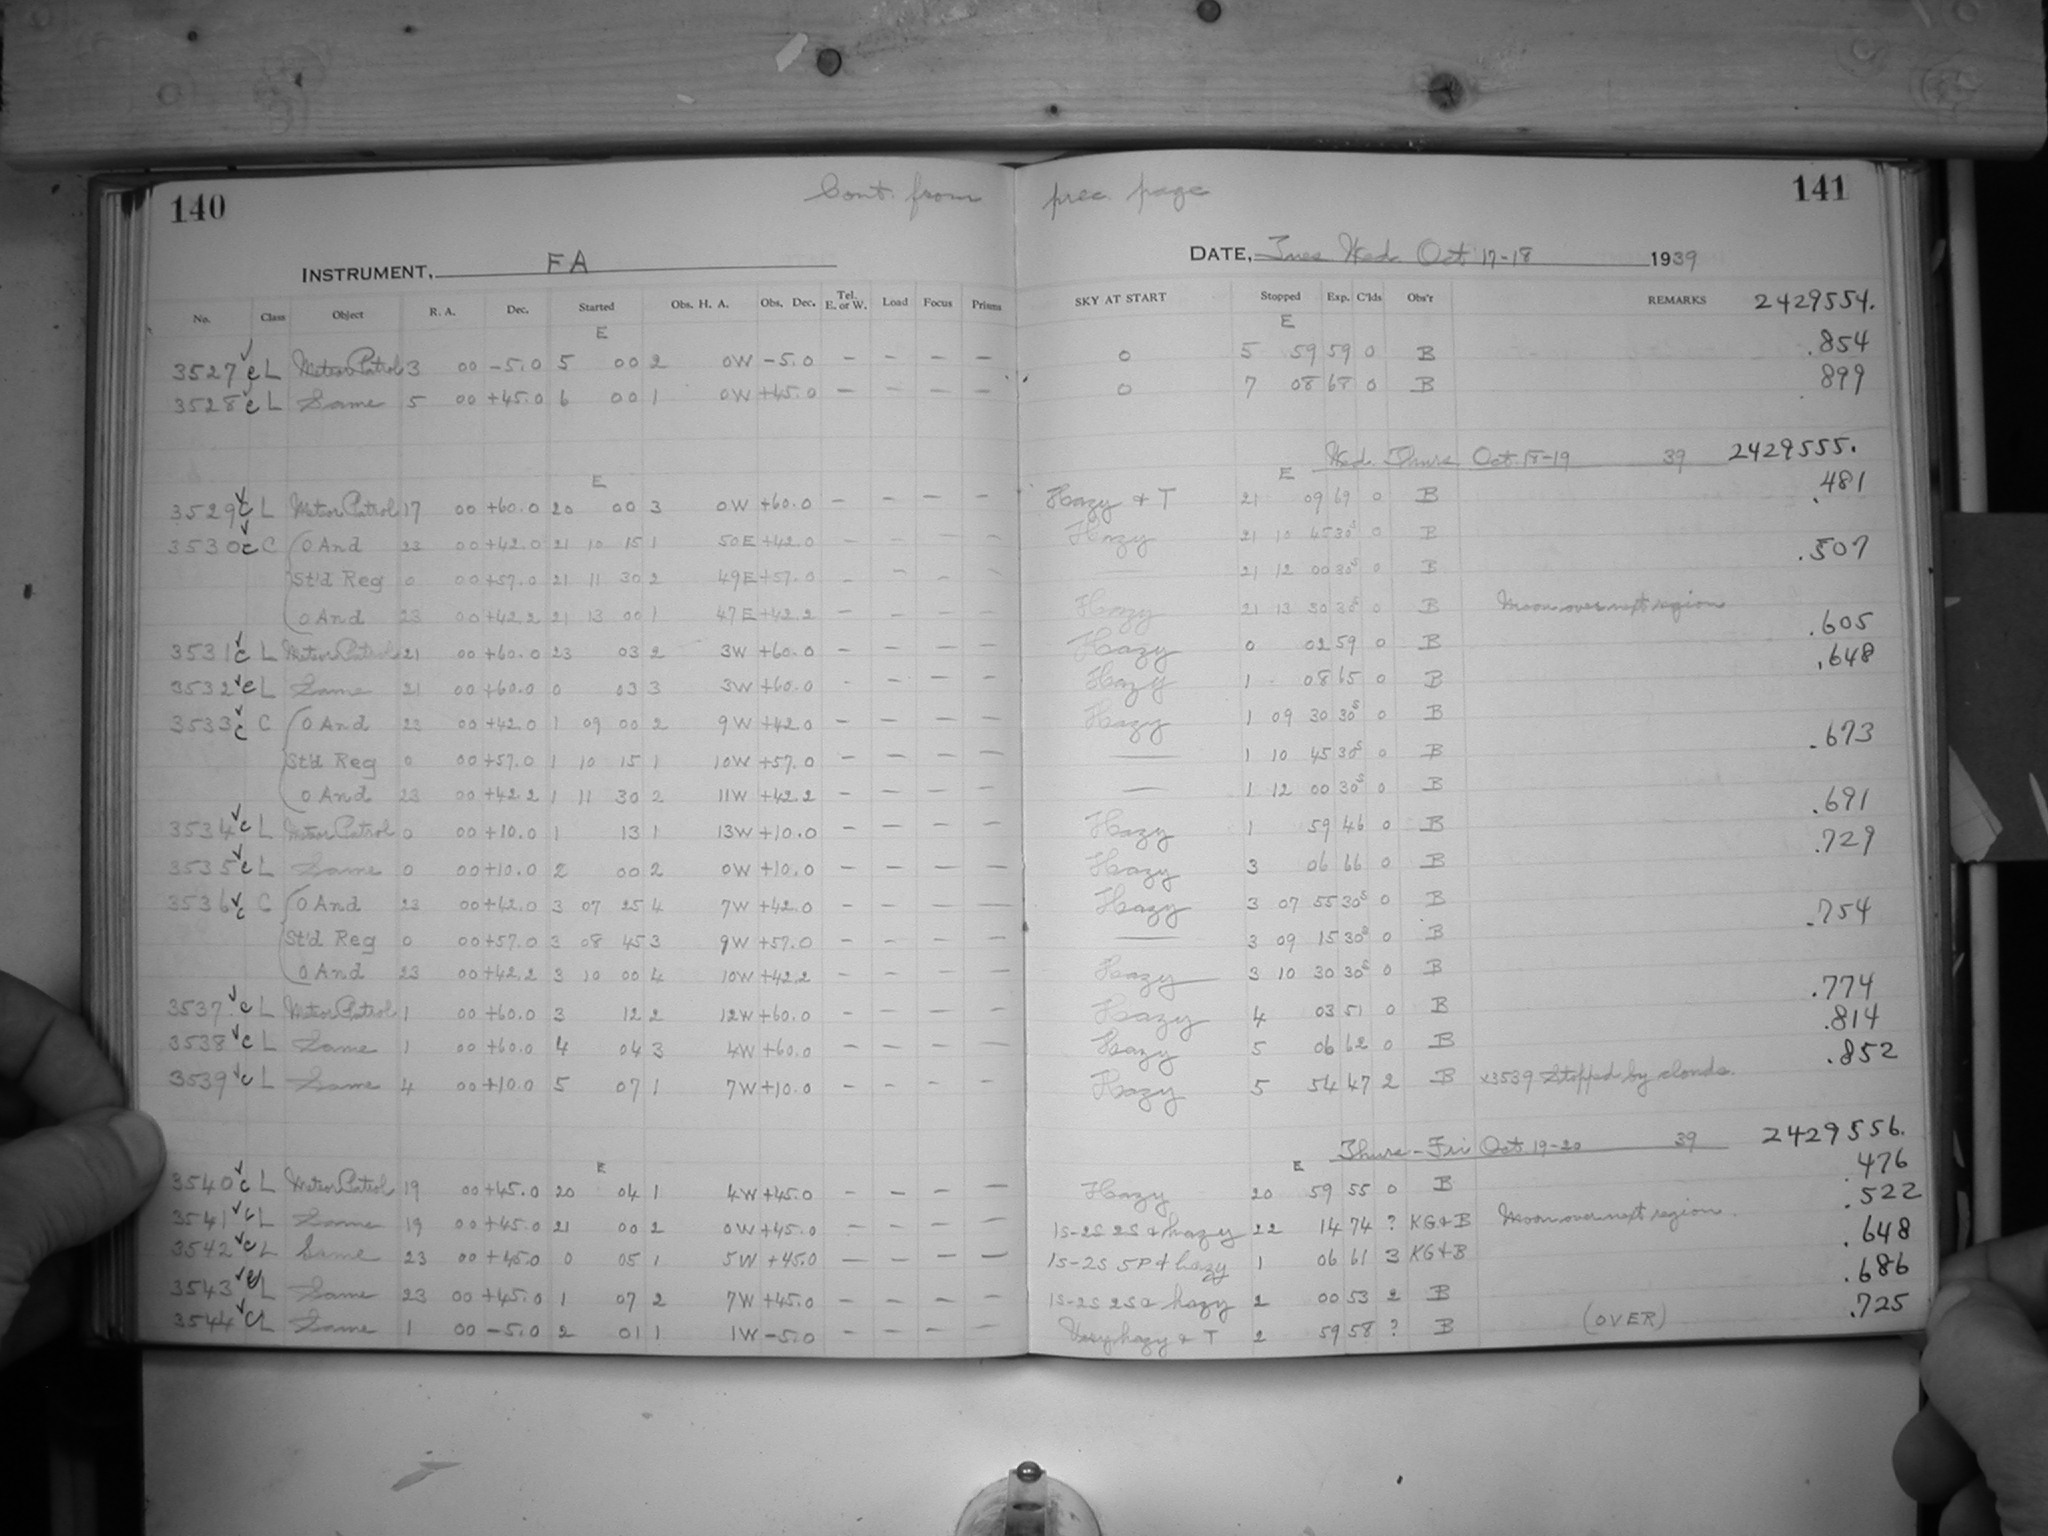 140 Cont. from prec. page 141
INSTRUMENT, FA DATE, Tues Wed. Oct 17-18 1939
No. Class Object R. A. Dec. Started Obs. H. A. Obs. Dec. Tel. E. or W. Load Focus Prisms SKY AT START Stopped Exp. C'lds Obs'r REMARKS 2429554.
E E
3527 c L Meteor Patrol 3 00 -5.0 5 00 2 0W -5.0 — — — — 0 5 59 59 0 B .854
3528 c L Same 5 00 +45.0 6 00 1 0W +45.0 — — — — 0 7 08 68 0 B .899
Wed. Thurs Oct. 18-19 39 2429555.
E E
3529 c L Meteor Patrol 17 00 +60.0 20 00 3 0W +60.0 — — — — Hazy & T 21 09 69 0 B .481
3530 c C (O And 23 00 +42.0 21 10 15 1 50E +42.0 — — — — Hazy 21 10 45 30s 0 B
St'd Reg 0 00 +57.0 21 11 30 2 49E +57.0 — — — — —— 21 12 00 30s 0 B .507
O And 23 00 +42.2 21 13 00 1 47E +42.2 — — — — Hazy 21 13 30 30s 0 B Moon over next region
3531 c L Meteor Patrol 21 00 +60.0 23 03 2 3W +60.0 — — — — Hazy 0 02 59 0 B .605
3532 c L Same 21 00 +60.0 0 03 3 3W +60.0 — — — — Hazy 1 08 65 0 B .648
3533 c C (O And 23 00 +42.0 1 09 00 2 9W +42.0 — — — — Hazy 1 09 30 30s 0 B
St'd Reg 0 00 +57.0 1 10 15 1 10W +57.0 — — — — —— 1 10 45 30s 0 B .673
O And 23 00 +42.2 1 11 30 2 11W +42.2 — — — — —— 1 12 00 30s 0 B
3534 c L Meteor Patrol 0 00 +10.0 1 13 1 13W +10.0 — — — — Hazy 1 59 46 0 B .691
3535 c L Same 0 00 +10.0 2 00 2 0W +10.0 — — — — Hazy 3 06 66 0 B .729
3536 c C (O And 23 00 +42.0 3 07 25 4 7W +42.0 — — — — Hazy 3 07 55 30s 0 B
St'd Reg 0 00 +57.0 3 08 45 3 9W +57.0 — — — — —— 3 09 15 30s 0 B .754
O And 23 00 +42.2 3 10 00 4 10W +42.2 — — — — Hazy 3 10 30 30s 0 B
3537 c L Meteor Patrol 1 00 +60.0 3 12 2 12W +60.0 — — — — Hazy 4 03 51 0 B .774
3538 c L Same 1 00 +60.0 4 04 3 4W +60.0 — — — — Hazy 5 06 62 0 B .814
3539 c L Same 4 00 +10.0 5 07 1 7W +10.0 — — — — Hazy 5 54 47 2 B x3539 Stopped by clouds. .852
Thurs-Fri Oct 19-20 39 2429556.
E E
3540 c L Meteor Patrol 19 00 +45.0 20 04 1 4W +45.0 — — — — Hazy 20 59 55 0 B .476
3541 c L Same 19 00 +45.0 21 00 2 0W +45.0 — — — — 1S-2S 2S & hazy 22 14 74 ? KG+B Moon over next region. .522
3542 c L Same 23 00 +45.0 0 05 1 5W +45.0 — — — — 1S-2S 5P & hazy 1 06 61 3 KG+B .648
3543 c L Same 23 00 +45.0 1 07 2 7W +45.0 — — — — 1S-2S 2S & hazy 2 00 53 2 B .686
3544 c L Same 1 00 -5.0 2 01 1 1W -5.0 — — — — Very hazy & T 2 59 58 ? B (OVER) .725